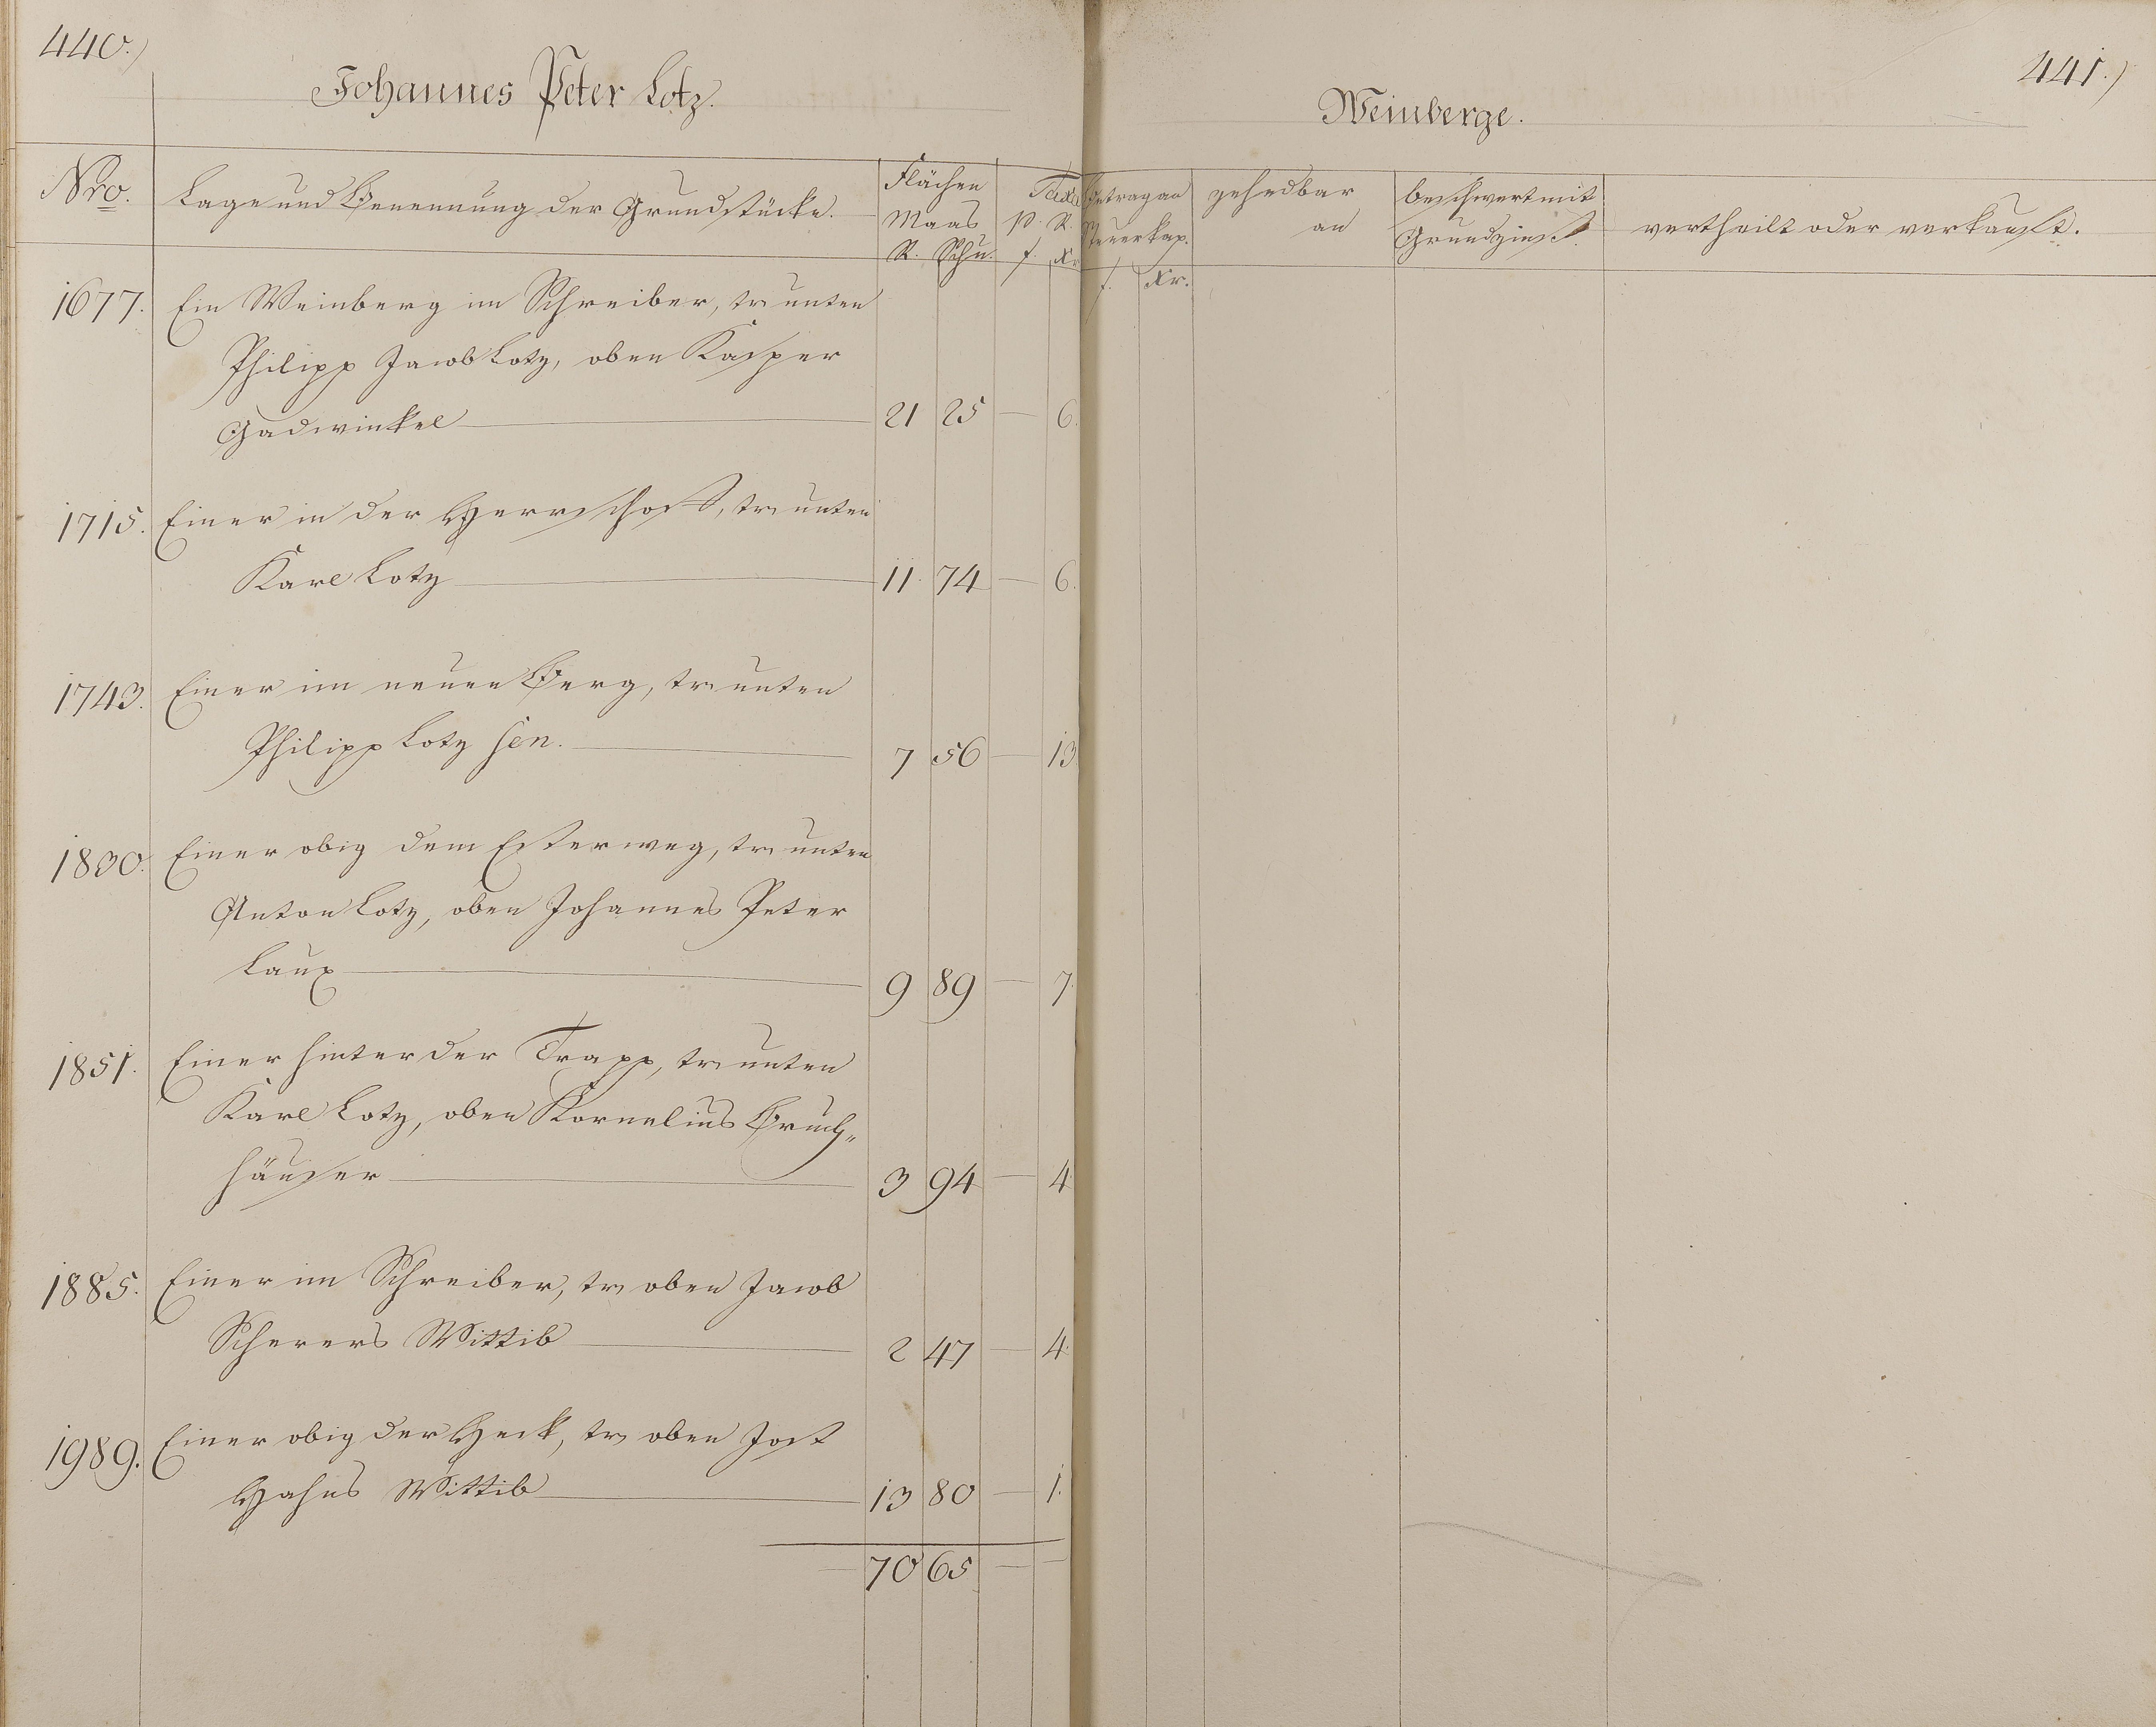 440.)
Johannes Peter Lotz.
Nro. Lage und Benennung der Grundstücke. Flächen Maas R. Schu. Taxa p. R. f. Xr
1677. Ein Weinberg im Schreiber, tr unten
Philipp Jacob Lotz, oben Kasper
Gadwinkel 21 25 — 6.
1715. Einer in der Herrschaft, tr unten
Karl Lotz 11. 74 — 6.
1743. Einer im neuen Berg, tr unten
Philipp Lotz sen. 7 56 — 13
1830. Einer obig dem Esterweg, tr unten
Anton Lotz, oben Johannes Peter
Laux 9 89 — 7.
1851. Einer hinter der Trapp, tr unten
Karl Lotz, oben Kornelius Bruch„
häuser 3 94 — 4
1885. Einer im Schreiber, tr oben Jacob
Scherers Wittib 2 47 — 4.
1989. Einer obig der Heck, tr oben Jost
Hahns Wittib 13 80 — 1.
— 70 65 — —
441.)
Weinberge.
Betrag an Steuerkap. f. Xr.
zehndbar an
beschwert mit Grundzinß.
vertheilt oder verkauft.